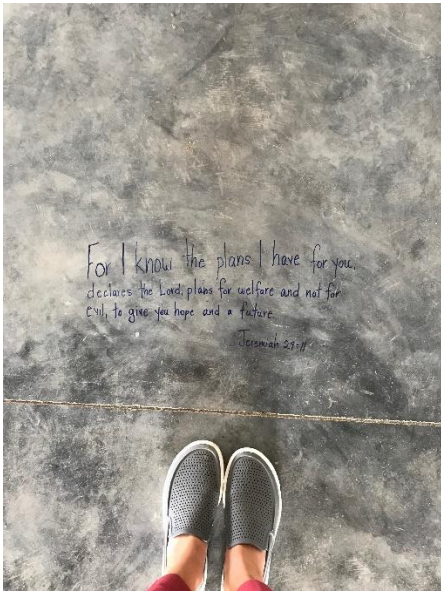 For I know the plans I have for you,
declares the Lord, plans for welfare and not for
evil, to give you hope and a future
Jeremiah 29:11